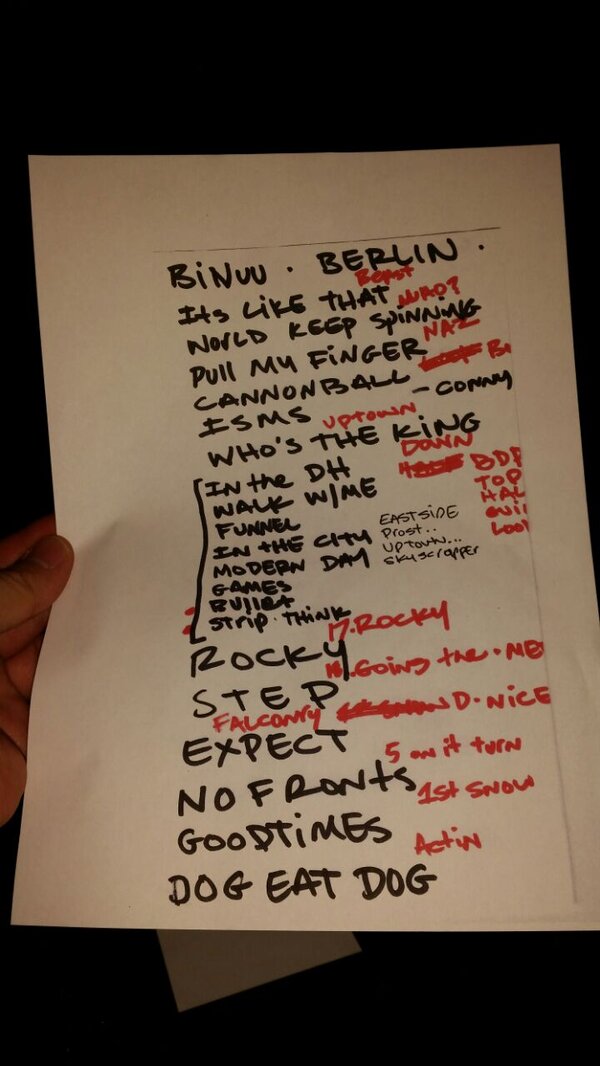 BiNUU · BERLIN ·
Beast
Its LiKE THAT WHO?
WORLD KEEP SpiNNiNG
PULL MY FiNGER NAZ
CANNONBALL
ISMS - CONNY
UPTOWN
WHO'S THE KiNG
DOWN
IN the DH BDP
WALK W/ME TOP
FUNNEL HAL
EASTSIDE
IN tHE CitY Prost..
MODERN DAY UPTOWN...
GAMES SkyscrApper
BUllet
StriP·THINK
17.ROCKY
ROCKY
Going the·ME
STEP
FALCONRY D·NiCE
EXPECT
5 on it turn
NO FRONtS
1st SNOW
GOODTiMES
Actin
DOG EAT DOG